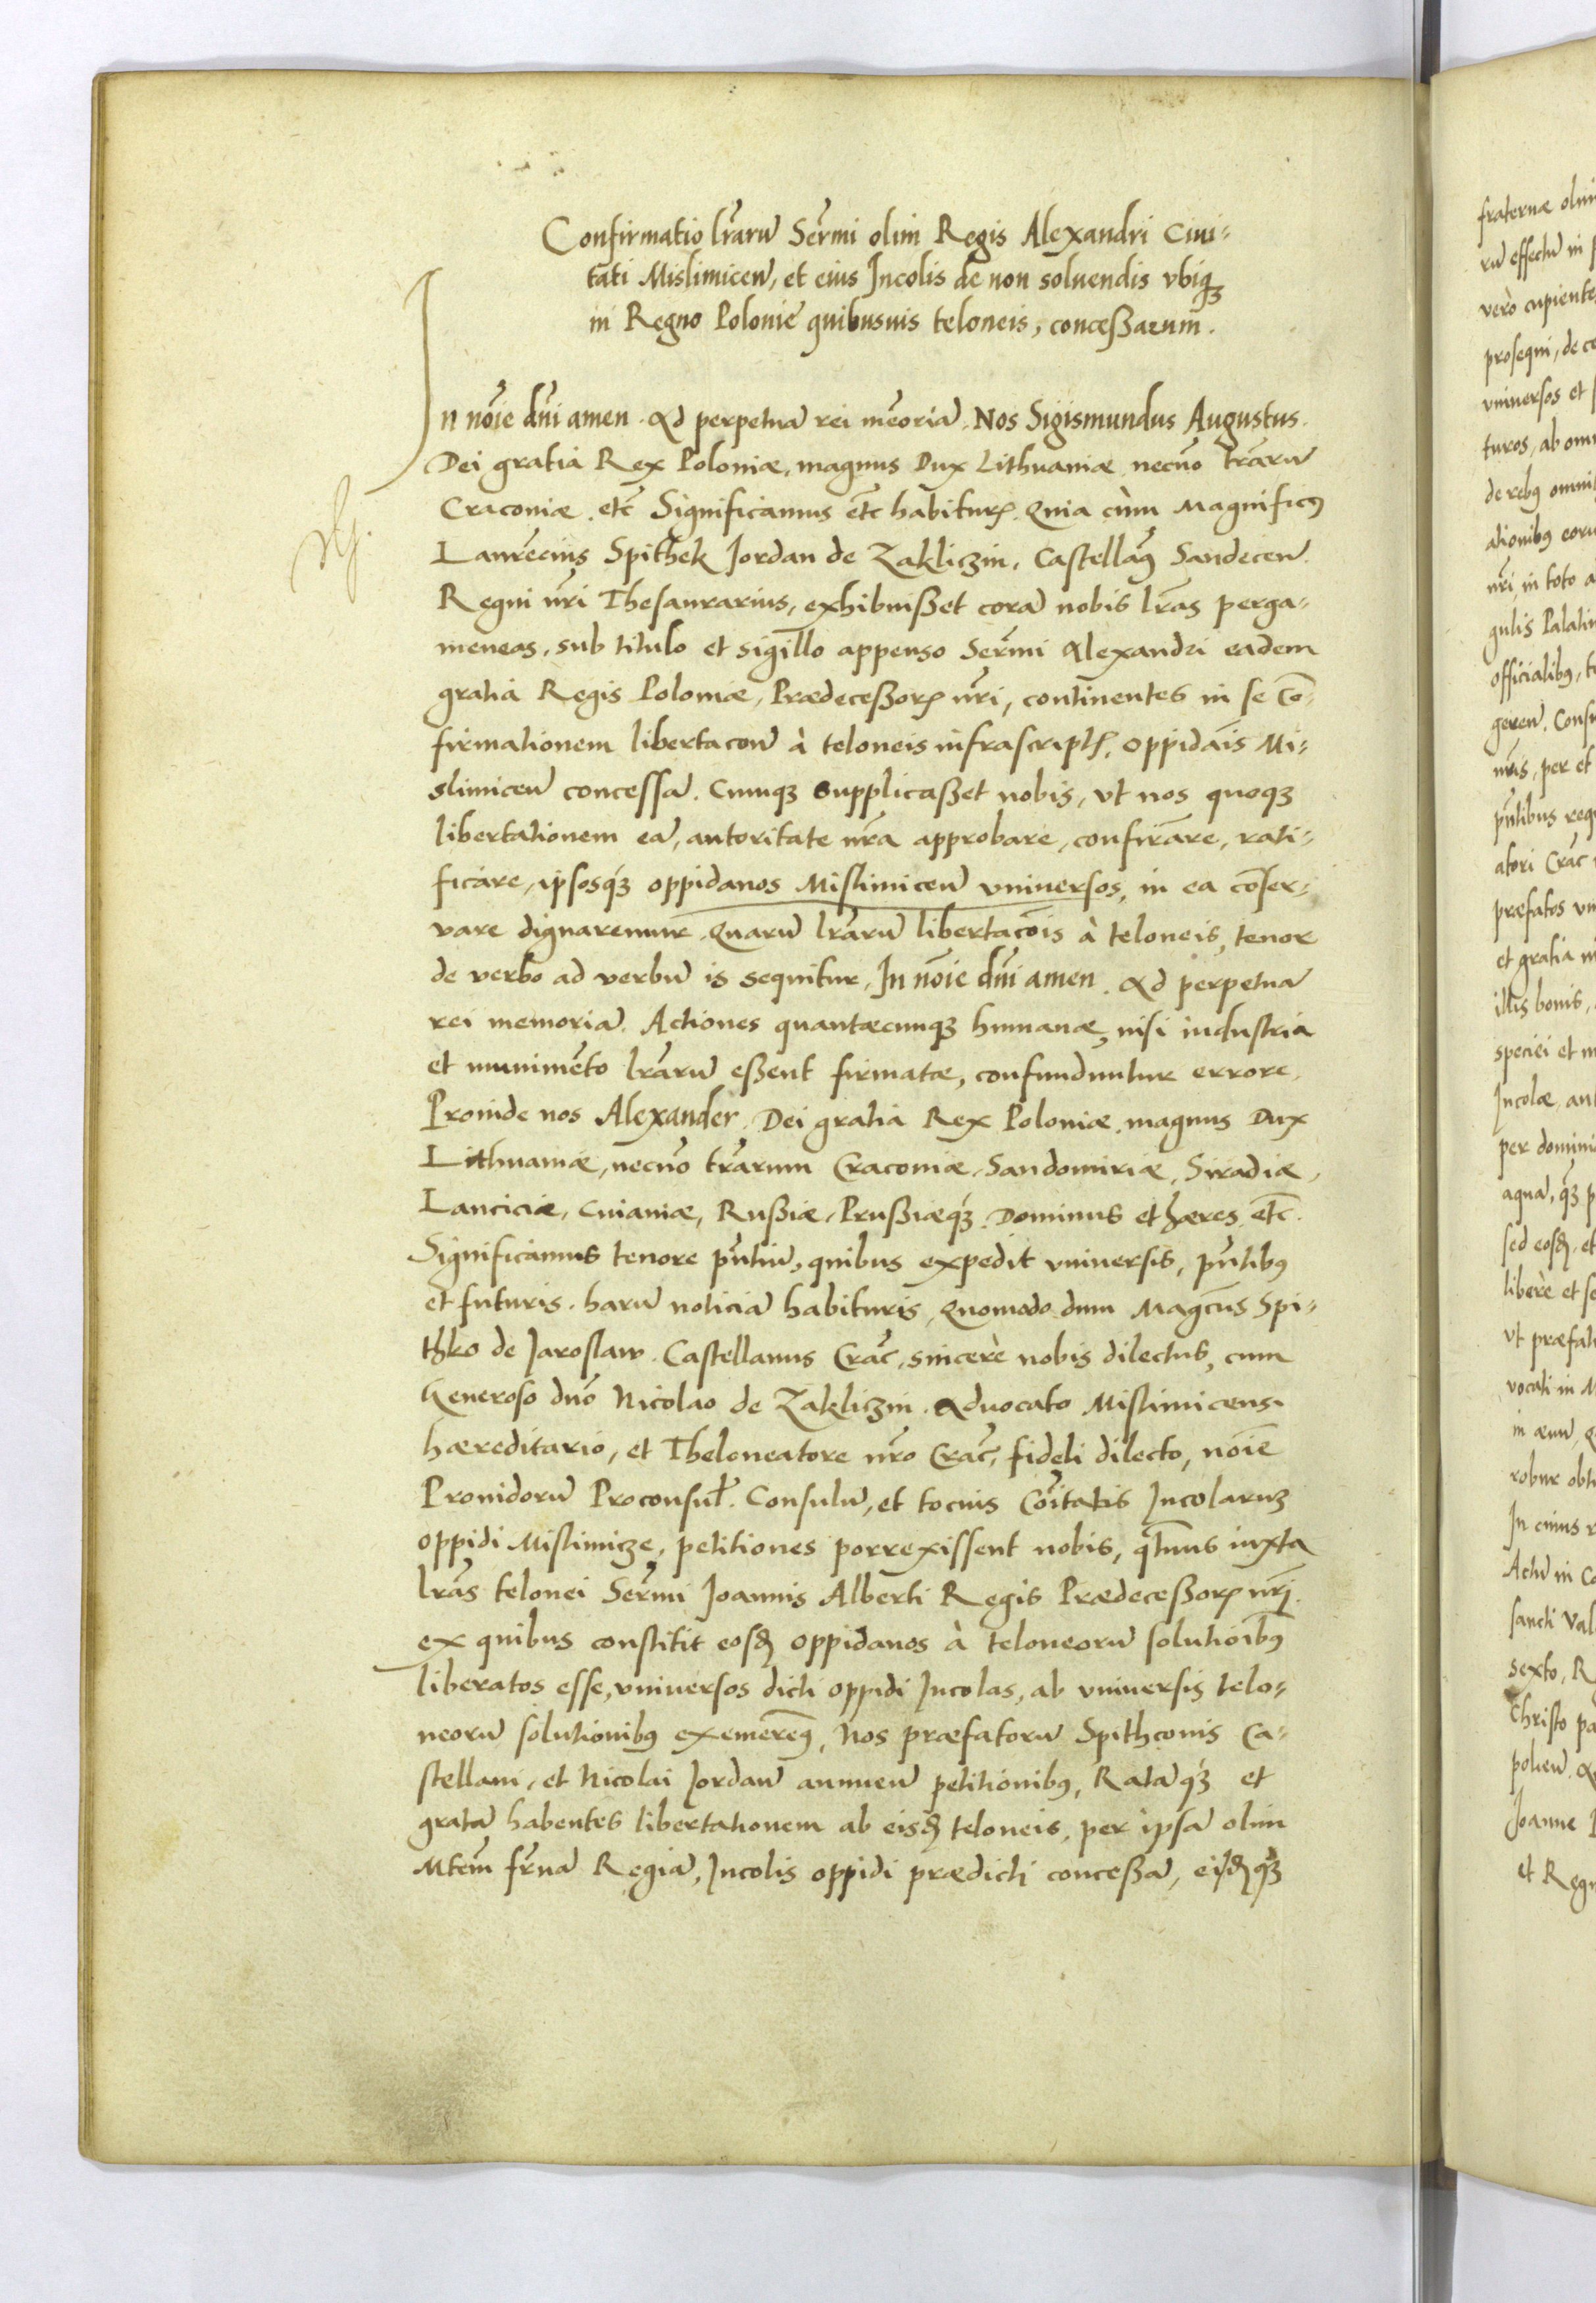 Confirmatio lr̃arũ Ser̃mi olim Regis Alexandri Ciui-
tati Mislimicen̄, et eius Incolis de non soluendis vbiqꝫ
in Regno Polonię quibusuis teloneis, conceßarum.
In nõie dñi amen. Ad perpetuã rei mẽoriã. Nos Sigismundus Augustus.
Dei gratia Rex Poloniæ, magnus Dux Lithuaniæ necnõ tr̃arũ
Craconiæ. etc̃ Significamus etc̃ habitur. Quia cùm Magnificꝰ
Laurẽcius Spithek Jordan de Zakliczin, Castellãꝰ Sandecen̄
Regni nr̃i Thesaurarius, exhibuißet corã nobis lr̃as perga-
meneas, sub titulo et sigillo appenso Ser̃mi Alexandri eadem
gratia Regis Poloniæ, Prædeceßor nr̃i, continentes in se cõ-
firmationem libertacon̄ à teloneis infrascript, oppidãis Mi-
slimicen̄ concessã. Cumqꝫ supplicaßet nobis, vt nos quoqꝫ
libertationem eã, autoritate nr̃a approbare, confir̃are, rati-
ficare, ipsosqꝫ́ oppidanos Mislimicen̄ vniuersos, in ea cõser-
vare dignaremur. Quarũ lr̃arũ libertacõis à teloneis, tenor
de verbo ad verbũ is sequitur, In nõie dñi amen. Ad perpetuã
rei memoriã. Actiones quantæcumqꝫ humanæ, nisi industria
et munimẽto lr̃arũ eßent firmatæ, confunduntur errore.
Proinde nos Alexander. Dei gratia Rex Poloniæ, magnus Dux
Lithuaniæ, necnõ tr̃arum Craconiæ, Sandomiriæ, Siradiæ,
Lanciciæ, Cuiauiæ, Rußiæ, Prußiæqꝫ́. Dominus et hæres etc̃.
Significamus tenore pñtiũ, quibus expedit vniuersis, pñtibꝰ
et futuris, harũ noticiã habituris, Quomodo dum Magcũs Spi-
thko de Jaroslaw. Castellanus Crac̃, sincerè nobis dilectus, cum
Generoso dnõ Nicolao de Zakliczin. Aduocato Mislimicens.
hæreditario, et Theloneatore nr̃o Crac̃, fideli dilecto, nõie
Prouidorũ Proconsul̃. Consulũ, et tocius Cõitatis Incolaruꝫ
oppidi Mislimicze, petitiones porrexissent nobis, qt̃nus iuxta
lr̃as telonei Ser̃mi Joannis Alberti Regis Prædeceßor nr̃i.
ex quibus constitit eosd oppidanos à teloneorũ solutiõibꝰ
liberatos esse, vniuersos dicti oppidi Incolas, ab vniuersis telo-
neorũ solutionibꝰ exemerẽꝰ, Nos præfatorũ Spithconis Ca-
stellani, et Nicolai Jordan̄ annuen̄ petitionibꝰ, Ratãqꝫ́ et
gratã habentes libertationem ab eisd teloneis, per ipsã olim
Mtẽm fr̃nã Regiã, Incolis oppidi prædicti conceßã, eisdqꝫ́
fraternæ olim
rũ effectũ in
verò cupiente
prosequi, de ce
vniuersos et
turos, ab omn
de rebꝰ omni
ationibꝰ eorũ
nr̃i in toto a
gulis Palatin
officialibꝰ, t
geren̄. Consu
nr̃is, per et
pñtibus requ
atori Crac̃
præfatos vn
et gratia n
illis bonis,
speciei et m
Incolæ, an
per domini
aquã, qꝫ́ p
sed eosd et
liberè et se
vt præfat
vocati in M
in æuũ, Q
robur obt
In cuius r
Actũ in C
sancti Val
sexto, R
Christo pa
polien̄. A
Joanne
et Regn